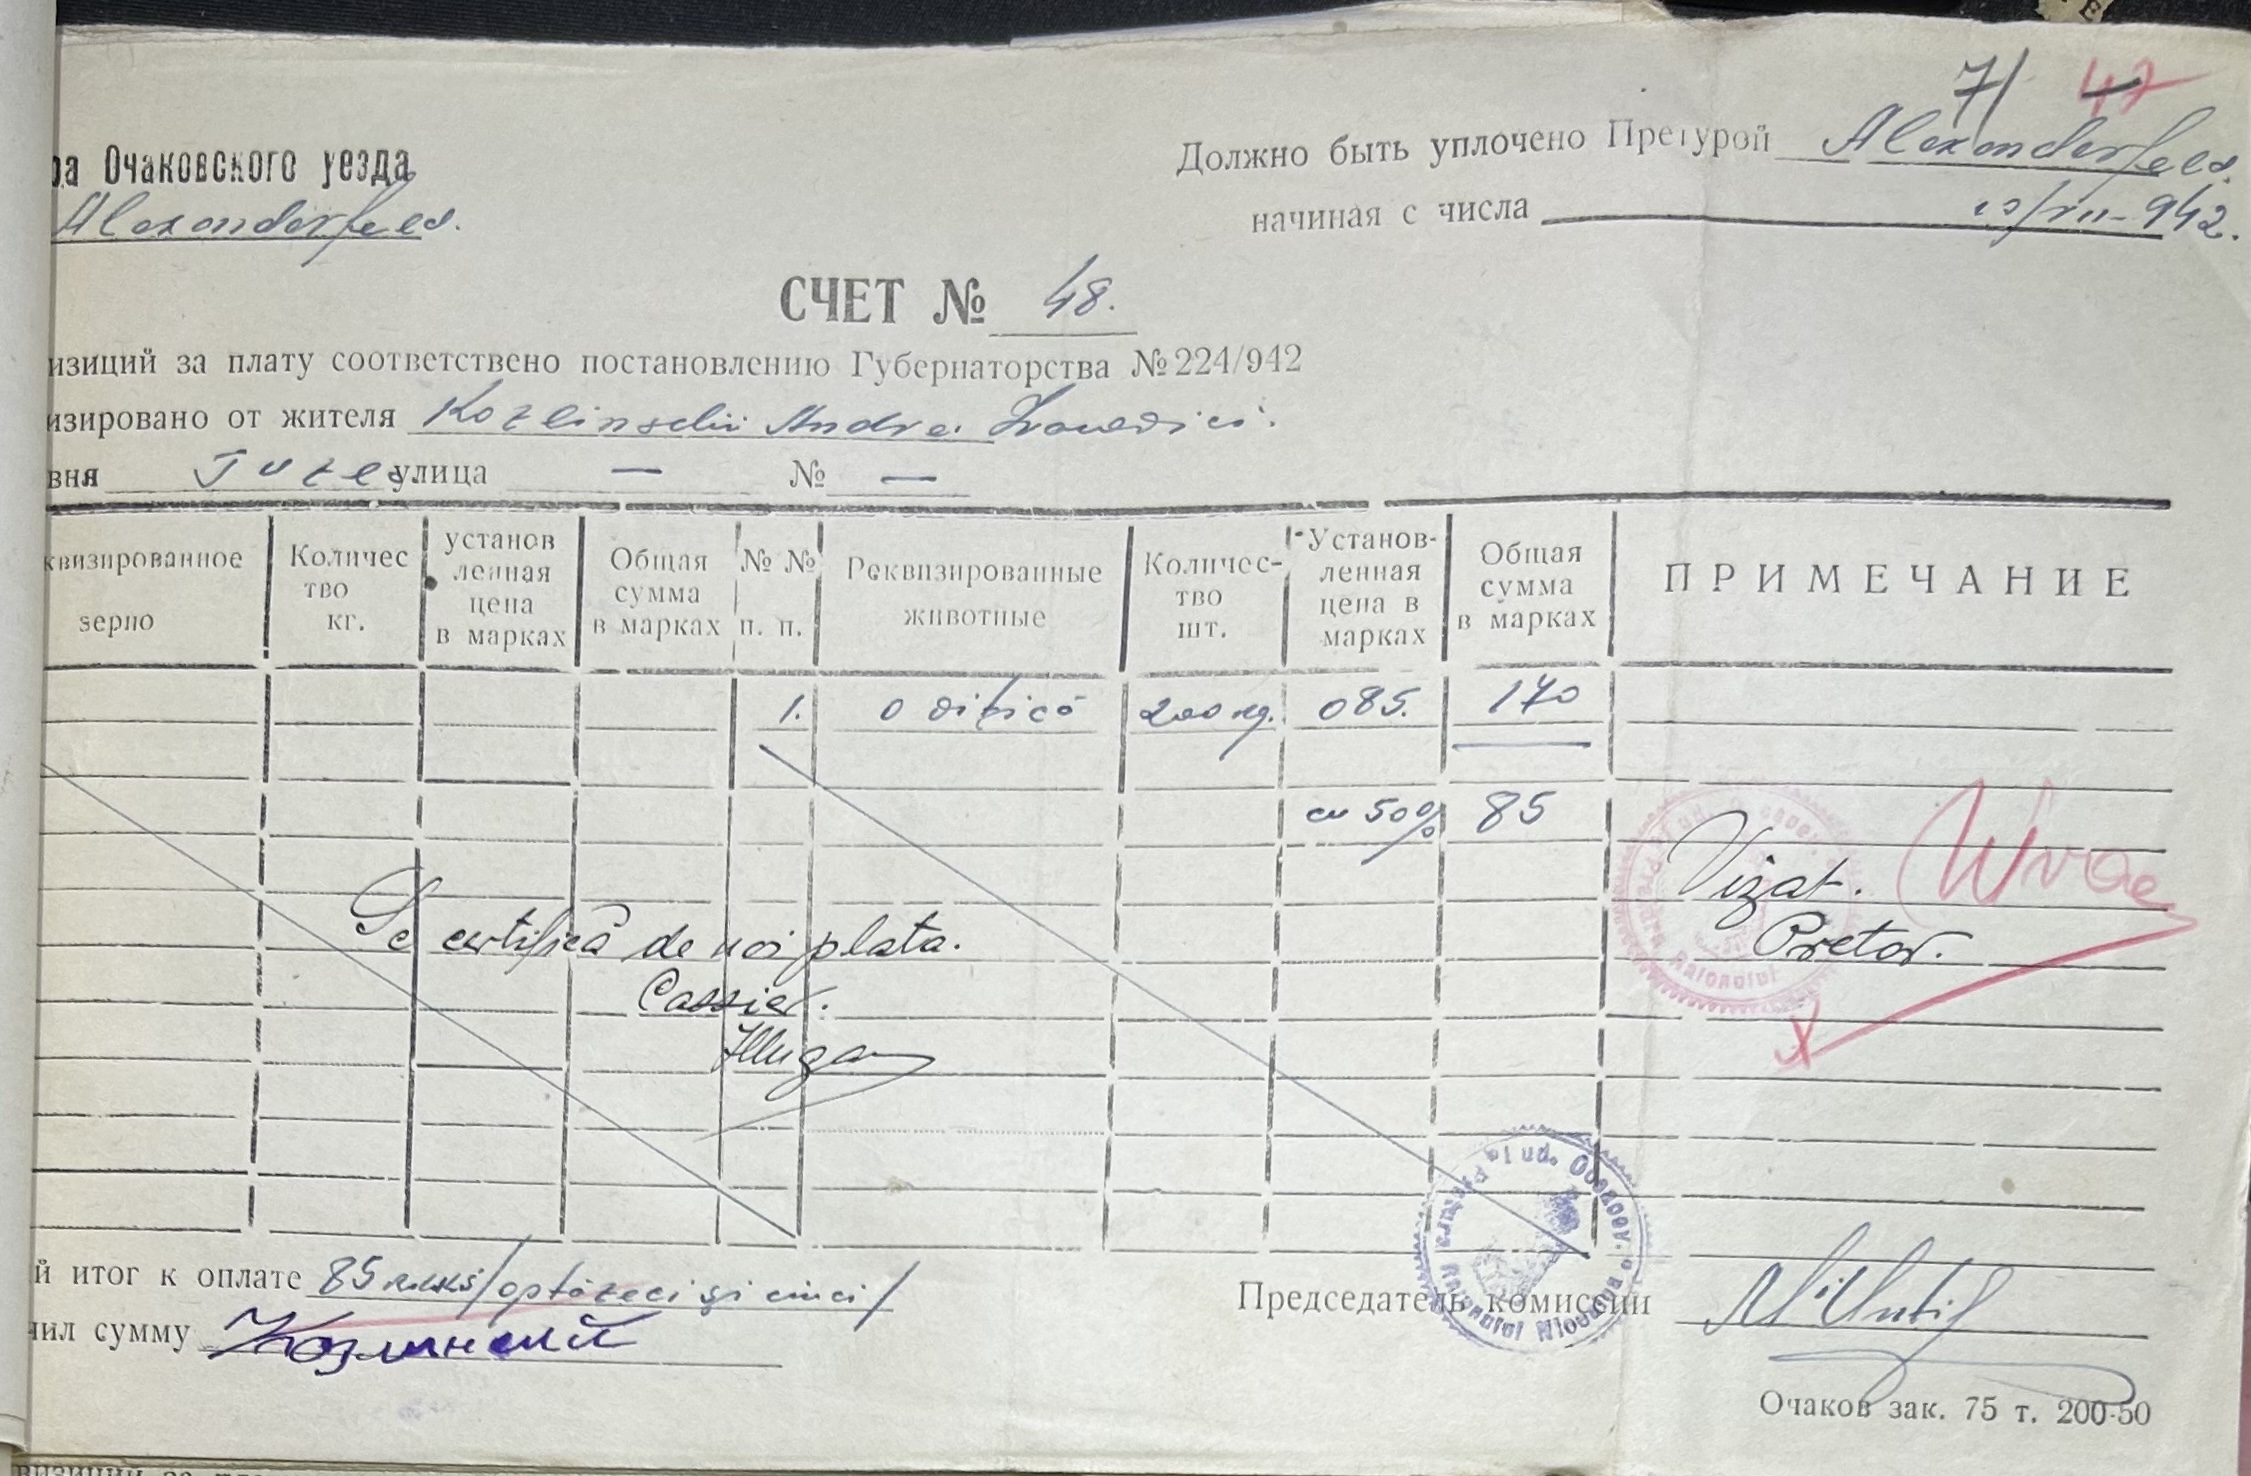 7/ 47
ра Очаковского уезда
Должно быть уплочено Претурой Alexanderfeld.
Alexanderfeld.
начиная с числа 10/VII-942.
СЧЕТ № 48.
изиций за плату соответствено постановлению Губернаторства №224/942
изировано от жителя Kozlinschii Andrei
вня улица — № —
квизированное зерно
Количес тво кг.
установ ленная цена в марках
Общая сумма в марках
№ № п. п.
Реквизированные животные
Количес- тво шт.
Установ- ленная цена в марках
Общая сумма в марках
ПРИМЕЧАНИЕ
1. O vițică 200 kg. 085. 170
cu 50% 85
Vizat.
Pretor.
Se certifică de noi plata.
Cassier.
й итог к оплате 85 /optăzeci și cinci/
чил сумму Козлинский
Председатель комиссии
Очаков зак. 75 т. 200-50